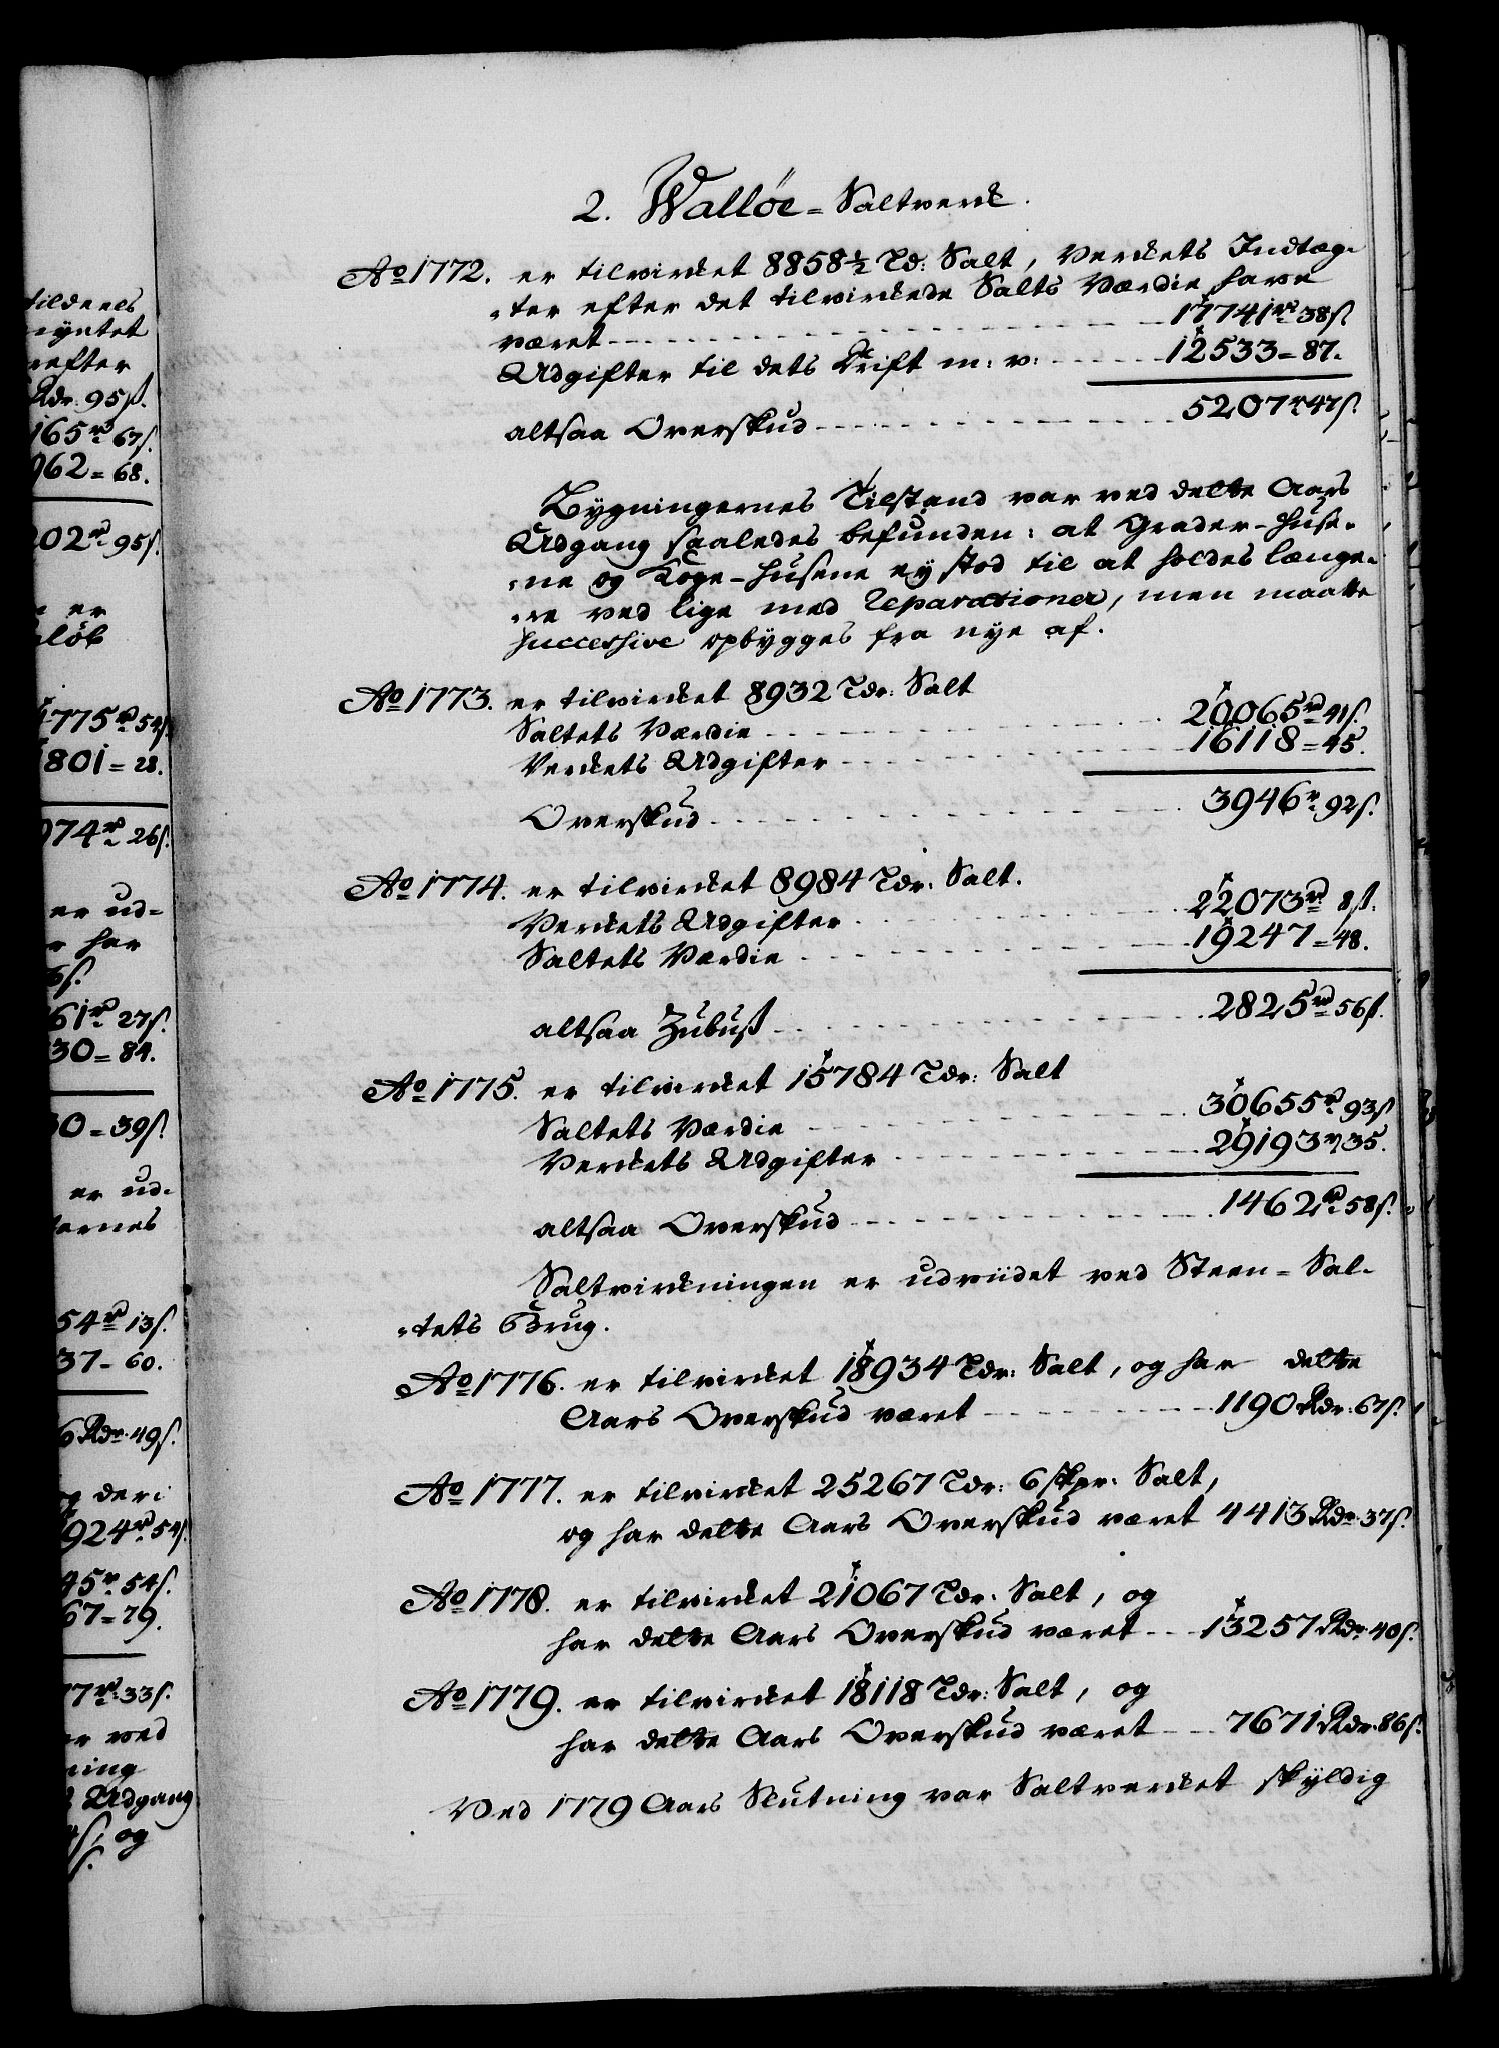 tildeels
-yntet
refter
Rdr. 95ß.
165rd 67ß.
962 = 68.
202rd 95ß.
er
løb
1775rd 54ß.
801 = 28.
974rd 26ß.
er ud-
r har
61rd 27ß.
30 = 84.
50 = 39ß.
er ud-
ternes
54rd 13ß.
37 - 60.
6 Rdr. 49ß.
deri
924rd 54ß.
45rd 54ß.
67 = 79.
77rd 33ß.
er ved
ning
Udgang
og
2. Walløe = Saltverk.
Ao 1772. er tilvirket 8858½ Td: Salt, Verkets Indtæg-
-ter efter det tilvirkede Salts Værdie have
været - - - 17741rd 38ß.
Udgifter til dets Drift m: v: - - - 12533 = 87.
altsaa Overskud - - - 5207rd 47ß.
Bygningernes Tilstand var ved dette Aars
Udgang saaledes befunden: at Grader-Huse-
-ne og Koge-Husene ey stod til at holdes længe-
-re ved lige med Reparationer, men maatte
successive opbygges fra nye af.
Ao 1773. er tilvirket 8932 Tdr: Salt
Saltets Værdie - - - 20065rd 41ß.
Verkets Udgifter - - - 16118 = 45.
Overskud - - - 3946rd 92ß.
Ao 1774. er tilvirket 8984 Tdr. Salt.
Verkets Udgifter - - - 22073rd 8ß.
Saltets Værdie - - - 19247 = 48.
altsaa Zubuß - - - 2825rd 56ß.
Ao 1775. er tilvirket 15784 Tdr: Salt
Saltets Værdie - - - 30655rd 93ß
Verkets Udgifter - - - 29193rd 35.
altsaa Overskud - - - 1462rd 58ß.
Saltvirkningen er udviidet ved Steen = Sal-
-tets Brug.
Ao 1776. er tilvirket 18934 Tdr: Salt, og har dette
Aars Overskud været - - - 1190 Rdr: 67ß.
Ao 1777. er tilvirket 25267 Tdr: 6 skpr. Salt,
og har dette Aars Overskud været 4413 Rdr. 37ß.
Ao 1778. er tilvirket 21067 Tdr. Salt, og
har dette Aars Overskud været - - - 13257 Rdr 40ß.
Ao 1779. er tilvirket 18118 Tdr: Salt, og
har dette Aars Overskud været - - - 7671 Rdr. 86ß.
Ved 1779 Aars Slutning var Saltverket skyldig